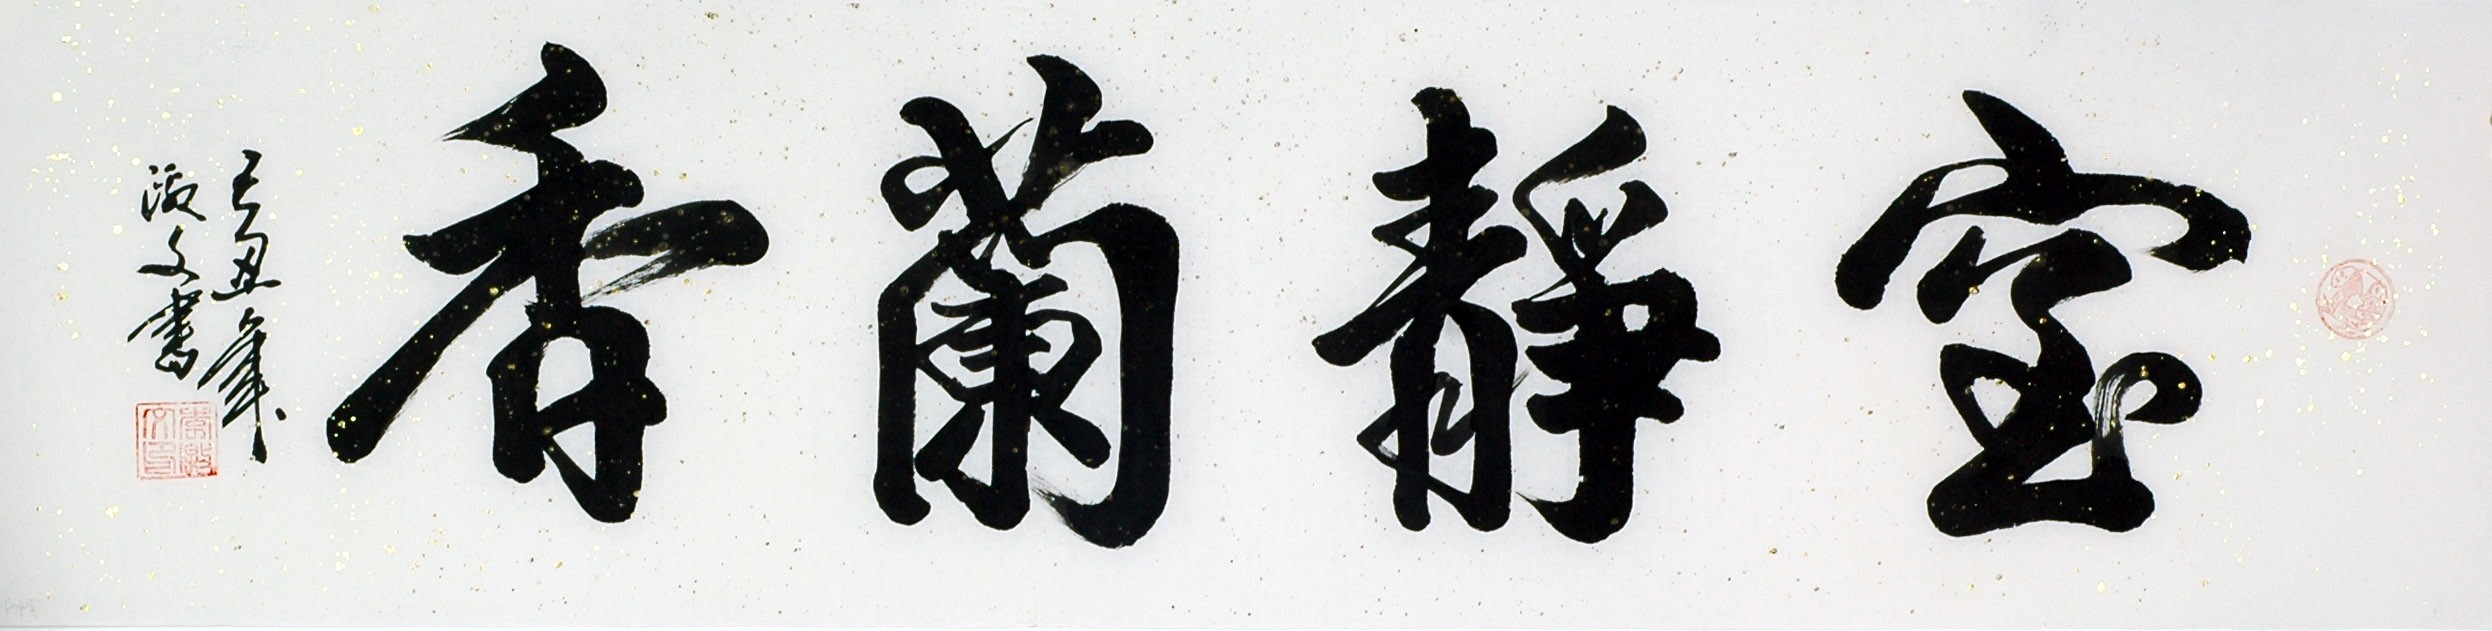 室靜蘭香
己丑年
波文書